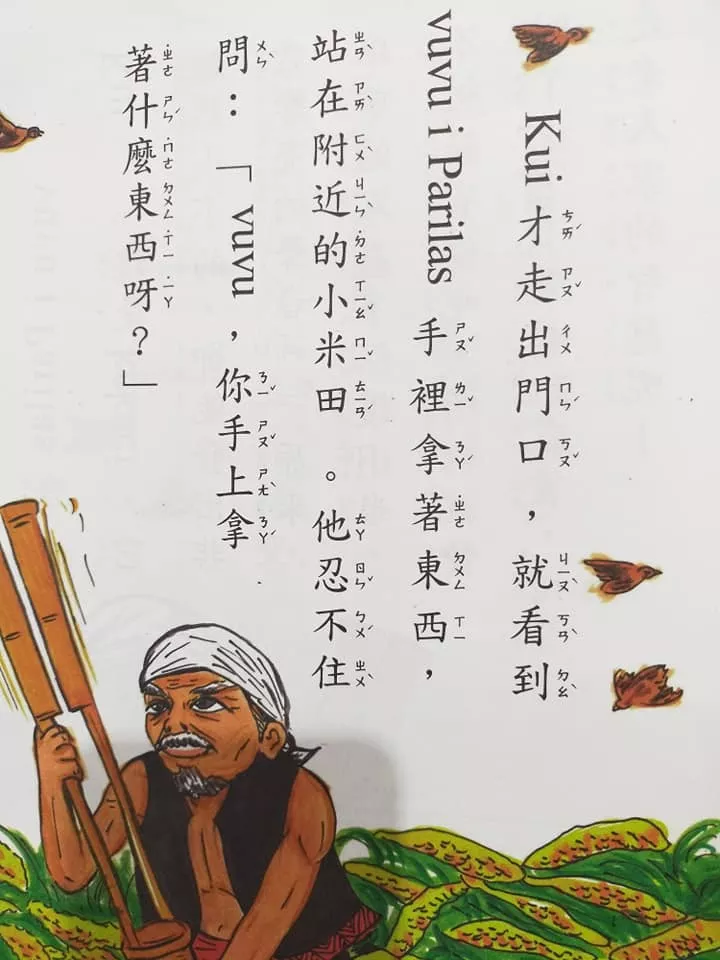 Kui才走出門口，就看到
vuvu i Parilas手裡拿著東西，
站在附近的小米田。他忍不住
問：「vuvu，你手上拿
著什麼東西呀？」